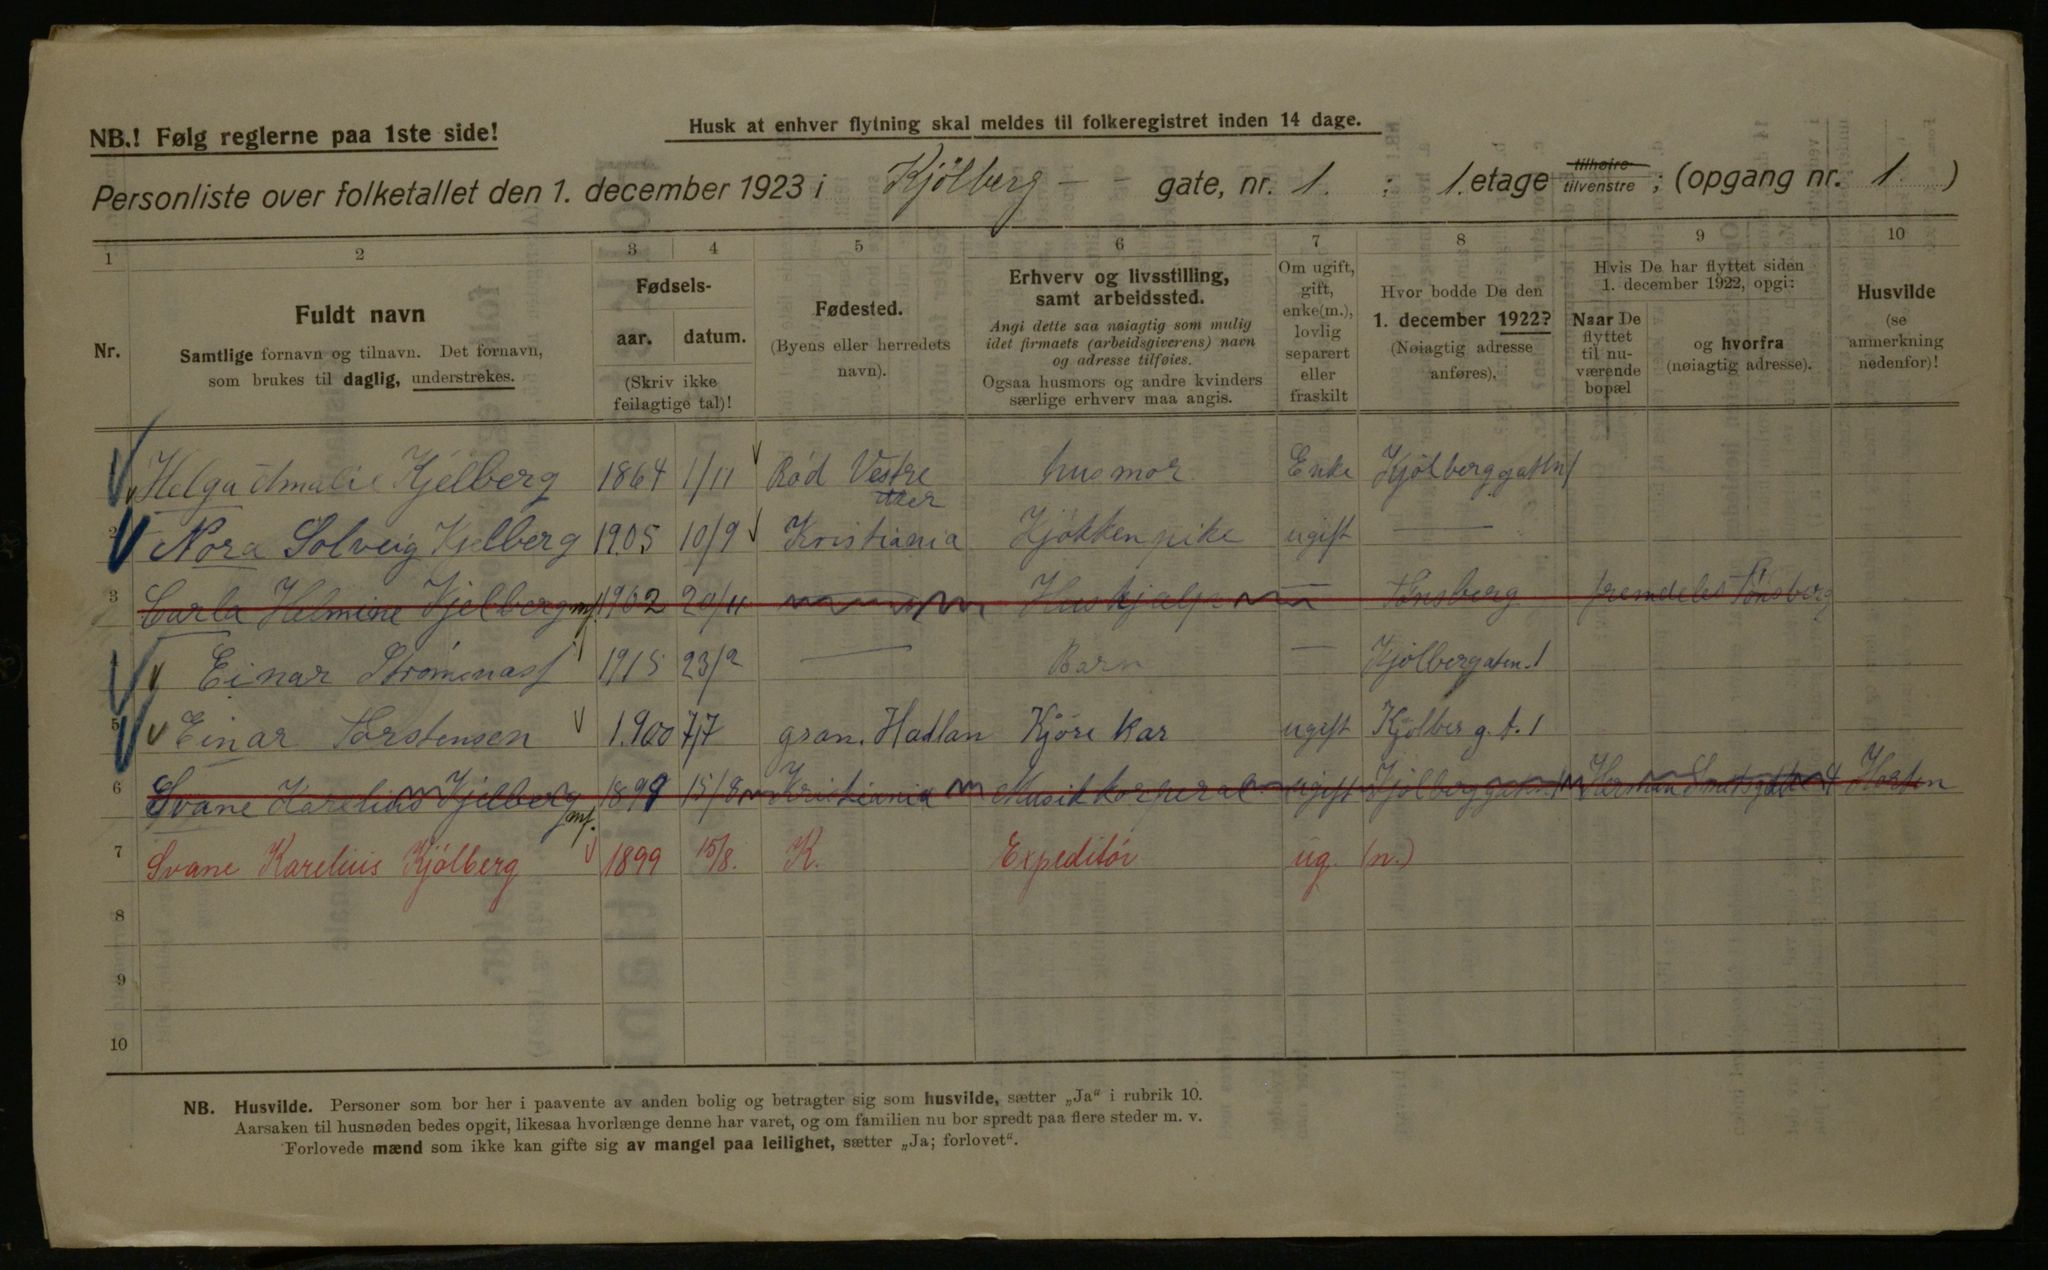 NB.! Følg reglerne paa 1ste side!
Husk at enhver flytning skal meldes til folkeregistret inden 14 dage.
Personliste over folketallet den 1. december 1923 i Kjølberg - - gate, nr. 1. ; 1. etage tilhøire tilvenstre ; (opgang nr. 1 )
1 2 3 4 5 6 7 8 9 10
Nr.
Fuldt navn
Samtlige fornavn og tilnavn. Det fornavn,
som brukes til daglig, understrekes.
Fødsels-
aar. datum.
(Skriv ikke
feilagtige tal)!
Fødested.
(Byens eller herredets
navn).
Erhverv og livsstilling,
samt arbeidssted.
Angi dette saa nøiagtig som mulig
idet firmaets (arbeidsgiverens) navn
og adresse tilføies.
Ogsaa husmors og andre kvinders
særlige erhverv maa angis.
Om ugift,
gift,
enke(m.),
lovlig
separert
eller
fraskilt
Hvor bodde De den
1. december 1922?
(Nøiagtig adresse
anføres).
Hvis De har flyttet siden
1. december 1922, opgi:
Naar De
flyttet
til nu-
værende
bopæl
og hvorfra
(nøiagtig adresse).
Husvilde
(se
anmerkning
nedenfor)!
Helga Amalie Kjelberg 1864 1/11 Rød Vestre husmor Enke Kjølberggatn 1
2 Nora Solveig Kjelberg 1905 10/9 Kristiania Kjøkkenpike ugift —
3 Carla Helmine Kjelberg 1902 20/11 Hushjælp — Tønsberg fremdeles Tønsberg
Einar 1915 23/2 — Barn — Kjølbergaten. 1
5 Einar Torstensen 1.900 7/7 gran. Hadlan Kjørekar ugift Kjølber g.t. 1
6 Svane Karelius Kjelberg 1899 15/8 Kristiania Musikkorperal ugift Horten
7 Svane Karelius Kjølberg 1899 15/8. K. Expeditør ug. (n.)
8
9
10
NB. Husvilde. Personer som bor her i paavente av anden bolig og betragter sig som husvilde, sætter „Ja“ i rubrik 10.
Aarsaken til husnøden bedes opgit, likesaa hvorlænge denne har varet, og om familien nu bor spredt paa flere steder m. v.
Forlovede mænd som ikke kan gifte sig av mangel paa leilighet, sætter „Ja; forlovet“.